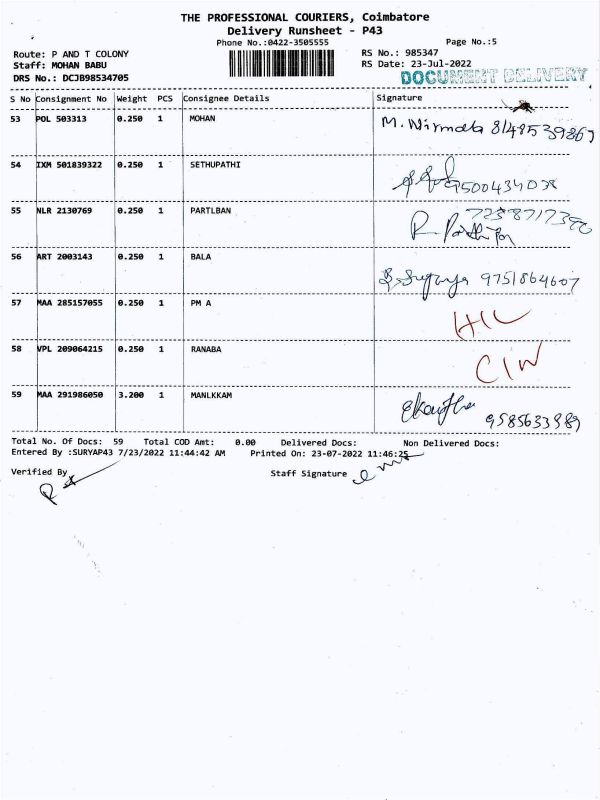 THE PROFESSIONAL COURIERS, Coimbatore
Delivery Runsheet - P43
Phone No.:0422-3505555 Page No.:5
Route: P AND T COLONY RS No.: 985347
Staff: MOHAN BABU RS Date: 23-Jul-2022
DRS No.: DCJB98534705 DOCUMENT DELIVERY
S No Consignment No Weight PCS Consignee Details Signature
53 POL 503313 0.250 1 MOHAN M. Nirmala 8148539867
54 IXM 501839322 0.250 1 SETHUPATHI 9500434038
55 NLR 2130769 0.250 1 PARTLBAN
56 ART 2003143 0.250 1 BALA 9751864607
57 MAA 285157055 0.250 1 PM A
58 VPL 209064215 0.250 1 RANABA
59 MAA 291986050 3.200 1 MANLKKAM 9585633989
Total No. Of Docs: 59 Total COD Amt: 0.00 Delivered Docs: Non Delivered Docs:
Entered By :SURYAP43 7/23/2022 11:44:42 AM Printed On: 23-07-2022 11:46:25
Verified By Staff Signature